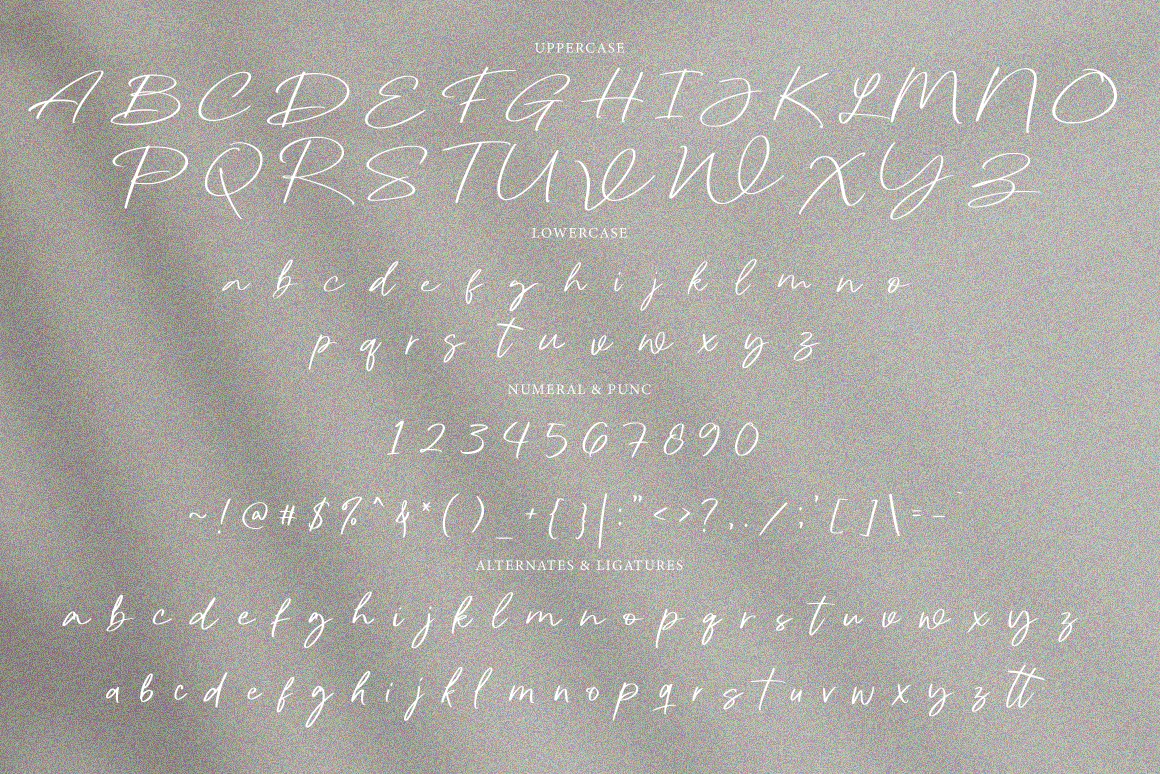 UPPERCASE
A B C D E F G H I J K L M N O
P Q R S T U V W X Y Z
LOWERCASE
a b c d e f g h i j k l m n o
p q r s t u v w x y z
NUMERAL & PUNC
1 2 3 4 5 6 7 8 9 0
~ ! @ # $ % ^ & * ( ) _ + { } | : " < > ? , . / ; ' [ ] \ = - `
ALTERNATES & LIGATURES
a b c d e f g h i j k l m n o p q r s t u v w x y z
a b c d e f g h i j k l m n o p q r s t u v w x y z tt